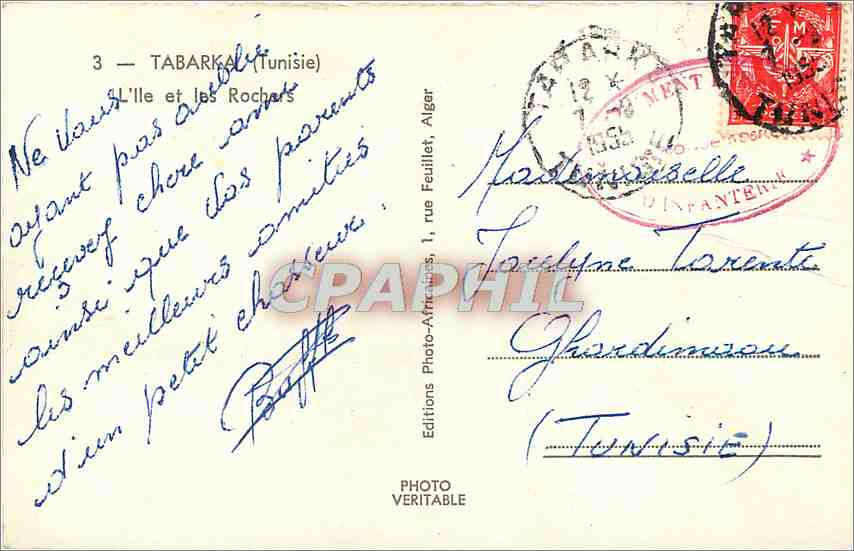 3 — TABARKA (Tunisie)
L'Ile et les Rochers
Ne vous
ayant pas oublié
recevez chere amie
ainsi que vos parents
les meilleurs amitiés
d'un petit chasseur.
Editions Photo-Africaines, 1, rue Feuillet, Alger
PHOTO
VERITABLE
CPAPHIL
TABARKA
12
D'INFANTERIE
Mademoiselle
Jocelyne Tarente
Ghardimaou
(TUNISIE)